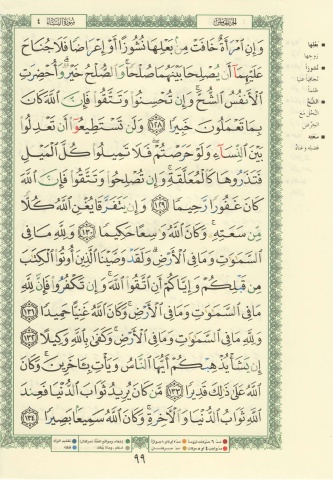 سورة النساء ٤
الجزء الخامس
وَإِنِ ٱمۡرَأَةٌ خَافَتۡ مِنۢ بَعۡلِهَا نُشُوزًا أَوۡ إِعۡرَاضٗا فَلَا جُنَاحَ
عَلَيۡهِمَآ أَن يُصۡلِحَا بَيۡنَهُمَا صُلۡحٗاۚ وَٱلصُّلۡحُ خَيۡرٞۗ وَأُحۡضِرَتِ
ٱلۡأَنفُسُ ٱلشُّحَّۚ وَإِن تُحۡسِنُواْ وَتَتَّقُواْ فَإِنَّ ٱللَّهَ كَانَ
بِمَا تَعۡمَلُونَ خَبِيرٗا ١٢٨ وَلَن تَسۡتَطِيعُوٓاْ أَن تَعۡدِلُواْ
بَيۡنَ ٱلنِّسَآءِ وَلَوۡ حَرَصۡتُمۡۖ فَلَا تَمِيلُواْ كُلَّ ٱلۡمَيۡلِ
فَتَذَرُوهَا كَٱلۡمُعَلَّقَةِۚ وَإِن تُصۡلِحُواْ وَتَتَّقُواْ فَإِنَّ ٱللَّهَ
كَانَ غَفُورٗا رَّحِيمٗا ١٢٩ وَإِن يَتَفَرَّقَا يُغۡنِ ٱللَّهُ كُلّٗا
مِّن سَعَتِهِۦۚ وَكَانَ ٱللَّهُ وَٰسِعًا حَكِيمٗا ١٣٠ وَلِلَّهِ مَا فِي
ٱلسَّمَٰوَٰتِ وَمَا فِي ٱلۡأَرۡضِۗ وَلَقَدۡ وَصَّيۡنَا ٱلَّذِينَ أُوتُواْ ٱلۡكِتَٰبَ
مِن قَبۡلِكُمۡ وَإِيَّاكُمۡ أَنِ ٱتَّقُواْ ٱللَّهَۚ وَإِن تَكۡفُرُواْ فَإِنَّ لِلَّهِ
مَا فِي ٱلسَّمَٰوَٰتِ وَمَا فِي ٱلۡأَرۡضِۚ وَكَانَ ٱللَّهُ غَنِيًّا حَمِيدٗا ١٣١
وَلِلَّهِ مَا فِي ٱلسَّمَٰوَٰتِ وَمَا فِي ٱلۡأَرۡضِۚ وَكَفَىٰ بِٱللَّهِ وَكِيلًا ١٣٢
إِن يَشَأۡ يُذۡهِبۡكُمۡ أَيُّهَا ٱلنَّاسُ وَيَأۡتِ بِـَٔاخَرِينَۚ وَكَانَ
ٱللَّهُ عَلَىٰ ذَٰلِكَ قَدِيرٗا ١٣٣ مَّن كَانَ يُرِيدُ ثَوَابَ ٱلدُّنۡيَا فَعِندَ
ٱللَّهِ ثَوَابُ ٱلدُّنۡيَا وَٱلۡأٓخِرَةِۚ وَكَانَ ٱللَّهُ سَمِيعَۢا بَصِيرٗا ١٣٤
بعلها
زوجها
نشوزاً
الشح
سعته
٩٩